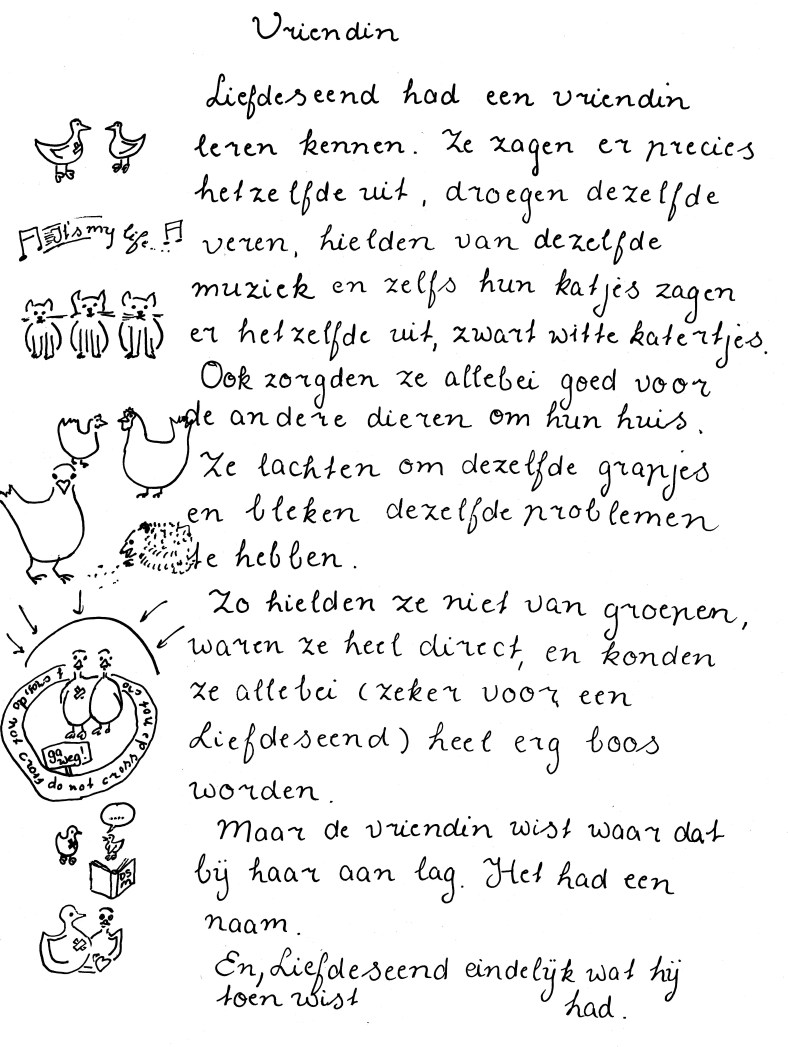 Vriendin
Liefdeseend had een vriendin
leren kennen. Ze zagen er precies
hetzelfde uit, droegen dezelfde
It's my life...
veren, hielden van dezelfde
muziek en zelfs hun katjes zagen
er hetzelfde uit, zwart witte katertjes.
Ook zorgden ze allebei goed voor
de andere dieren om hun huis.
Ze lachten om dezelfde grapjes
en bleken dezelfde problemen
te hebben.
Zo hielden ze niet van groepen,
waren ze heel direct, en konden
ze allebei (zeker voor een
Liefdeseend) heel erg boos
worden.
do not cross
ga
weg!
Maar de vriendin wist waar dat
....
bij haar aan lag. Het had een
DS
M
naam.
En, Liefdeseend eindelijk wat hij
toen wist had.